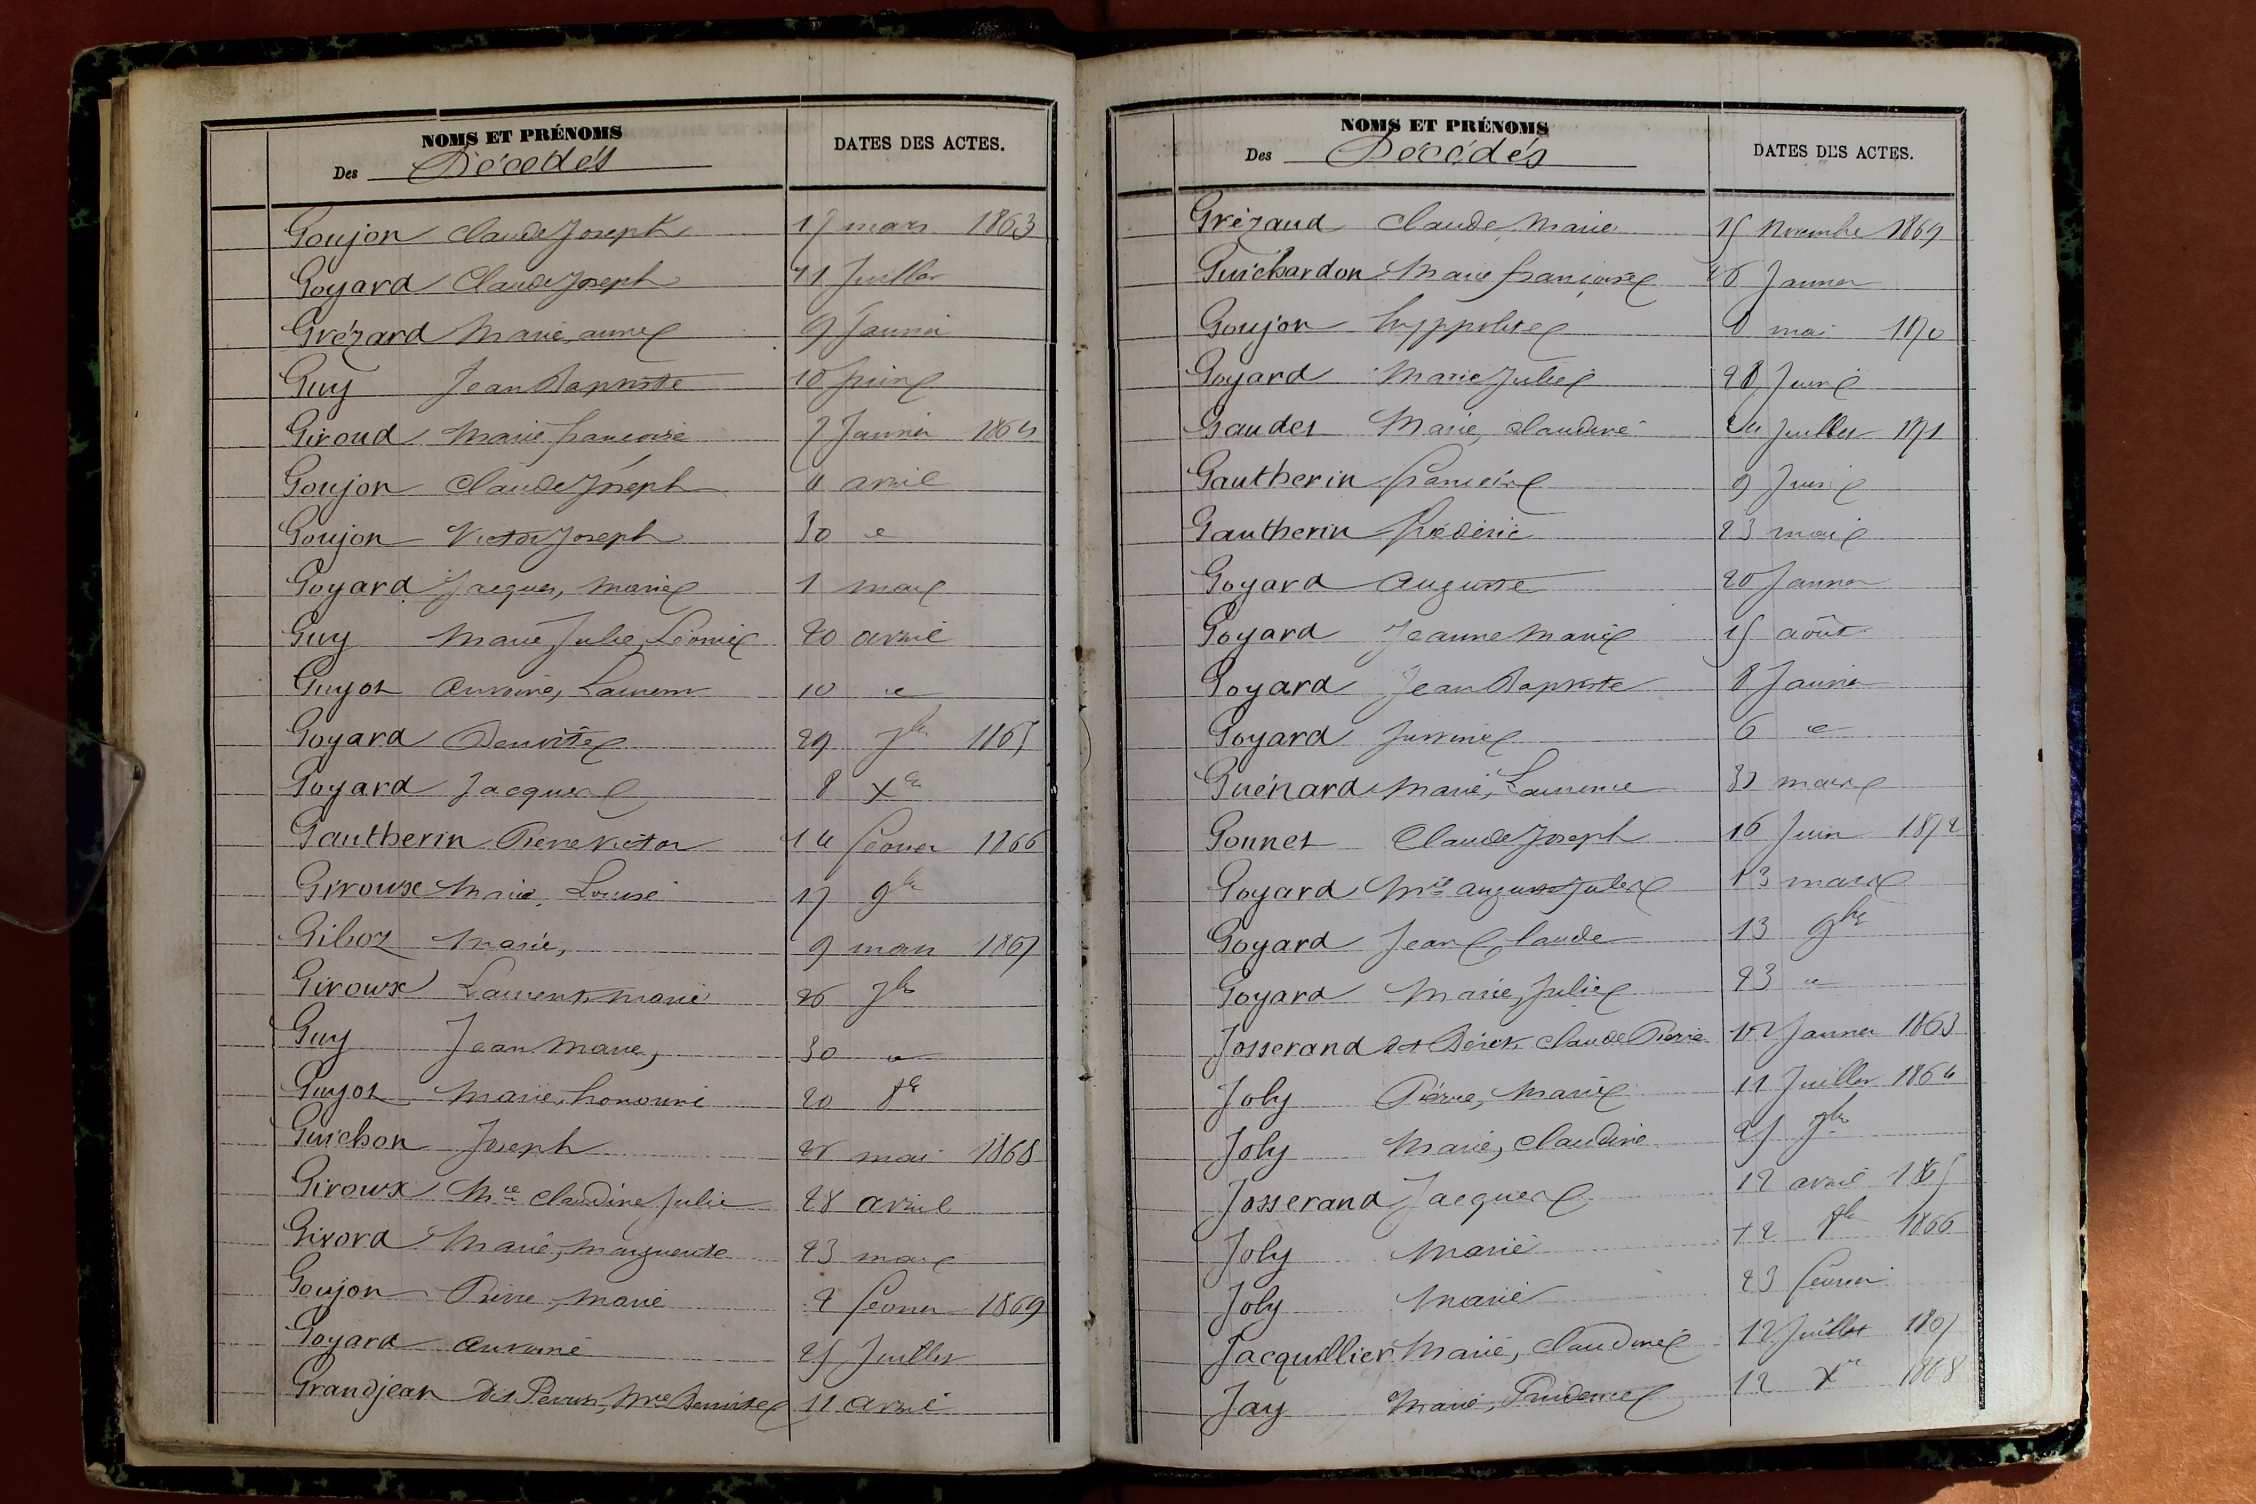 NOMS ET PRÉNOMS
Des Décédés
DATES DES ACTES.
Goujon Claude Joseph 17 mars 1863
Goyard Claude Joseph 11 Juillet
Grézard Marie, anne 9 Janvier
Guy Jean Baptiste 10 Juin
Giroud Marie françoise 7 Janvier 1864
Goujon Claude Joseph 8 avril
Goujon Victor Joseph 30 "
Goyard Jacques, Marie 1 mars
Guy Marie, Julie, Léonie 20 avril
Guyot Antoine, Laurent 10 "
Goyard Benoite 29 7bre 1865
Goyard Jacques 8 Xbre
Gautherin Pierre Victor 14 février 1866
Giroux Marie, Louise 17 9bre
Giboz Marie, 9 mars 1867
Giroux Laurent, Marie 26 7bre
Guy Jean Marie, 30 "
Guyot Marie, honorine 20 8bre
Guichon Joseph mai 1868
Giroux Mie Claudine Julie 28 avril
Girord Marie, Marguerite 23 mars
Goujon Pierre Marie 2 février 1869
Goyard Antoine 25 Juillet
Grandjean dit Mie Benoite 11 avril
NOMS ET PRÉNOMS
Des Décédés
DATES DES ACTES.
Grézaud Claude, Marie 15 Novembre 1869
Guichardon Marie françoise 26 Janvier
Goujon hyppolite 8 mai 1870
Goyard Marie Julie 28 Juin
Gaudet Marie, Claudine 24 Juillet 1871
Gautherin francoise 9 Juin
Gautherin frédéric 23 mai
Goyard Auguste 20 Janvier
Goyard Jeanne Marie 15 août
Goyard Jean Baptiste 8 Janvier
Goyard Justine 6 "
Guénard Marie, Laurence 31 mars
Gonnet Claude Joseph 16 Juin 1872
Goyard Mie auguste Jules 13 mars
Goyard Jean Claude 13 9bre
Goyard Marie, Julie 23 "
Josserand dit Claude Pierre 12 Janvier 1863
Joly Pierre, Marie 11 Juillet 1864
Joly Marie, Claudine 25 7bre
Josserand Jacques 12 avril 1865
Joly Marie 12 8bre 1866
Joly Marie 23 février
Jacquillier Marie, Claudine 12 Juillet 1867
Jay Marie, Prudence 12 Xbre 1868